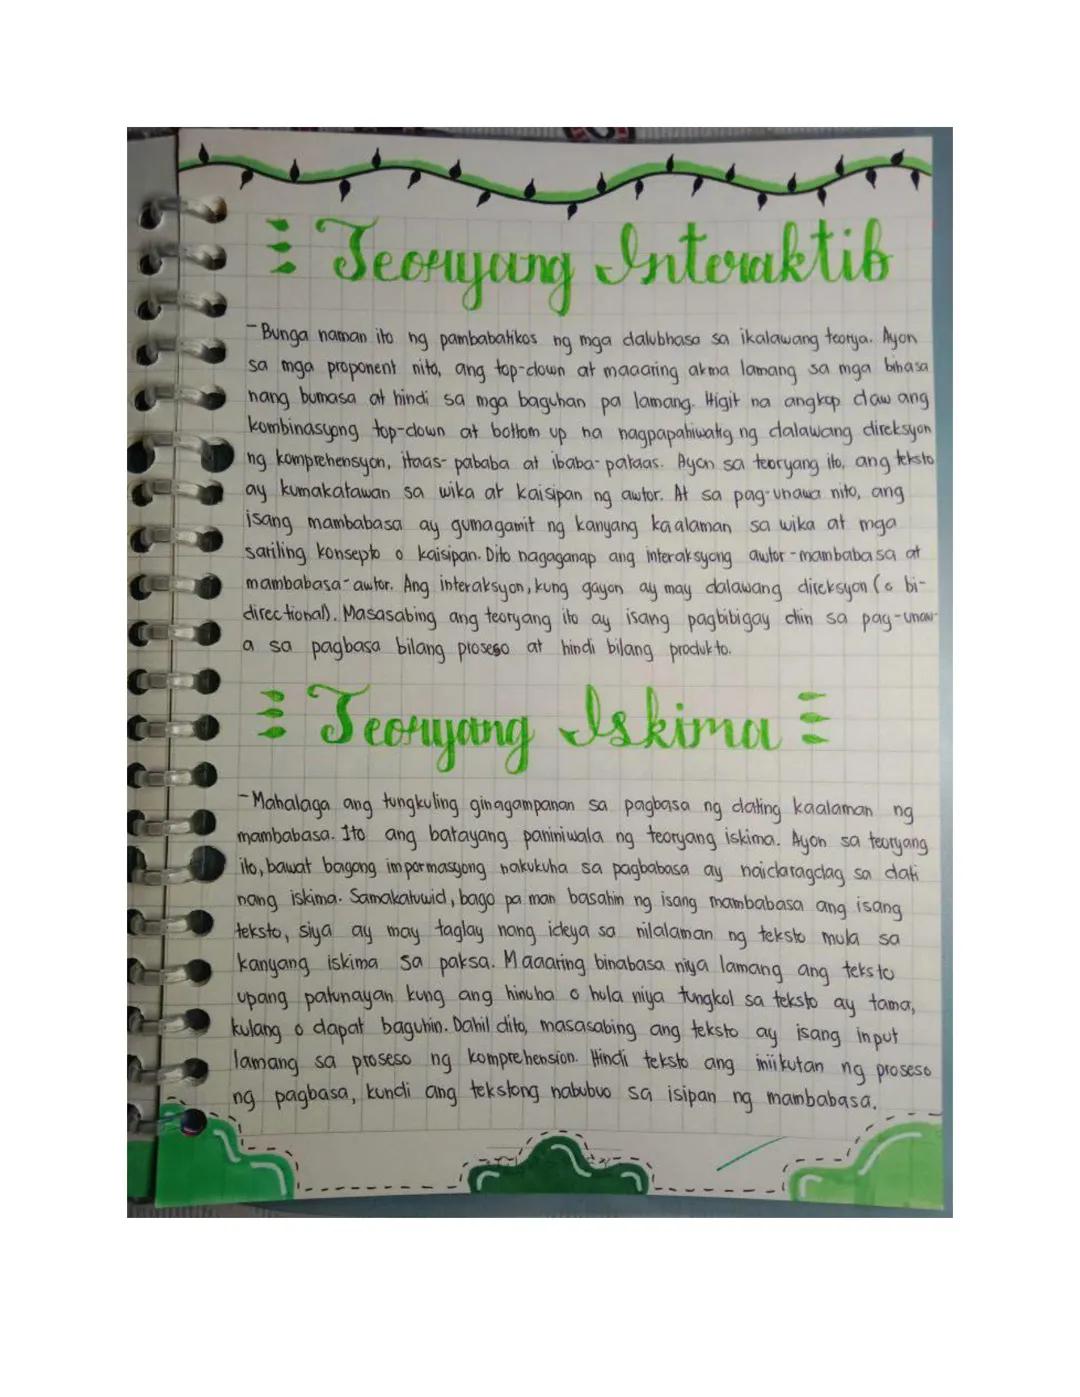 Teoryang Interaktib
- Bunga naman ito ng pambabatikos ng mga dalubhasa sa ikalawang teorya. Ayon
sa mga proponent nito, ang top-down at maaaring akma lamang sa mga bihasa
nang bumasa at hindi sa mga baguhan pa lamang. Higit na angkop daw ang
kombinasyong top-down at bottom up na nagpapahiwatig ng dalawang direksyon
ng komprehensyon, itaas-pababa at ibaba-pataas. Ayon sa teoryang ito, ang teksto
ay kumakatawan sa wika at kaisipan ng awtor. At sa pag-unawa nito, ang
isang mambabasa ay gumagamit ng kanyang kaalaman sa wika at mga
sariling konsepto o kaisipan. Dito nagaganap ang interaksyong awtor-mambabasa at
mambabasa-awtor. Ang interaksyon, kung gayon ay may dalawang direksyon (o bi-
directional). Masasabing ang teoryang ito ay isang pagbibigay diin sa pag-unaw-
a sa pagbasa bilang proseso at hindi bilang produkto.
Teoryang Iskima
- Mahalaga ang tungkuling ginagampanan sa pagbasa ng dating kaalaman ng
mambabasa. Ito ang batayang paniniwala ng teoryang iskima. Ayon sa teoryang
ito, bawat bagong impormasyong nakukuha sa pagbabasa ay naidaragdag sa dati
nang iskima. Samakatuwid, bago pa man basahin ng isang mambabasa ang isang
teksto, siya ay may taglay nang ideya sa nilalaman ng teksto mula sa
kanyang iskima sa paksa. Maaaring binabasa niya lamang ang teksto
upang patunayan kung ang hinuha o hula niya tungkol sa teksto ay tama,
kulang o dapat baguhin. Dahil dito, masasabing ang teksto ay isang input
lamang sa proseso ng komprehension. Hindi teksto ang iniikutan ng proseso
ng pagbasa, kundi ang tekstong nabubuo sa isipan ng mambabasa.